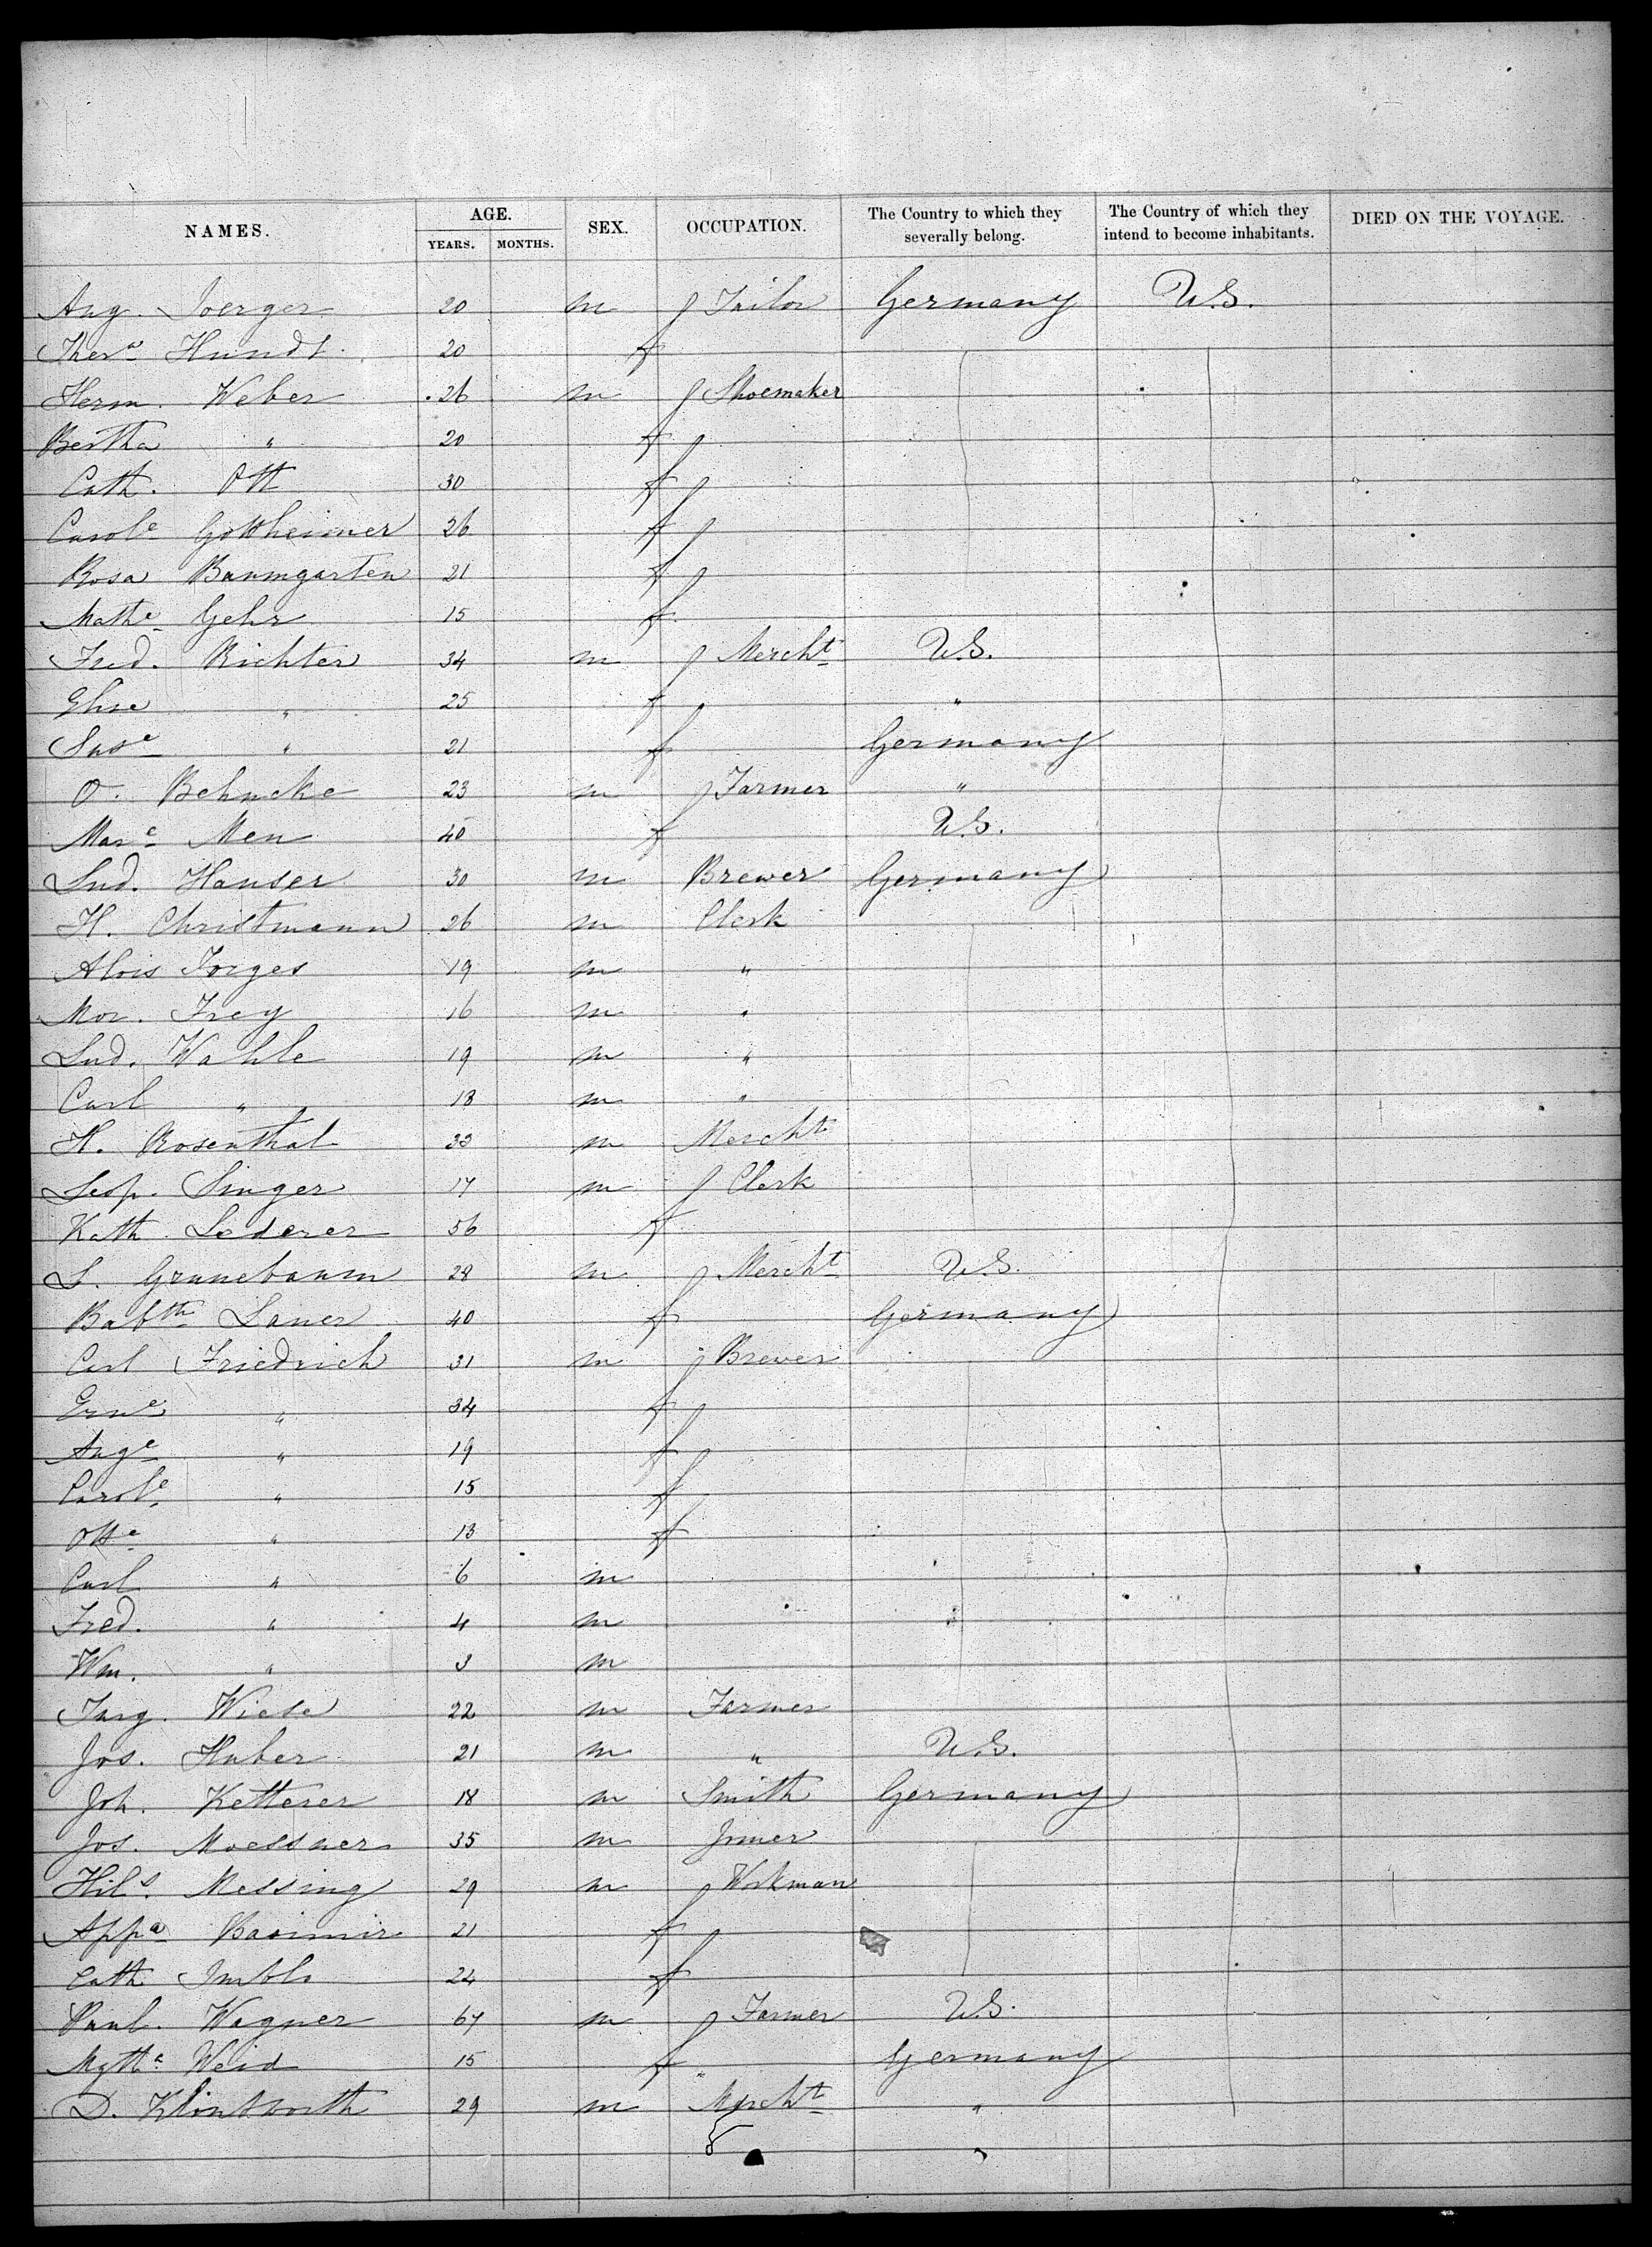 NAMES. AGE. SEX. OCCUPATION. The Country to which they severally belong. The Country of which they intend to become inhabitants. DIED ON THE VOYAGE.
YEARS. MONTHS.
Aug. Joerger 20 m Tailor Germany U.S.
Thers Hundt 20 f
Herm. Weber 26 m Shoemaker
Bertha " 20 f
Cath. Ott 30 f
Carole Gottheimer 26 f
Rosa Baumgarten 21 f
Mathe Gehr 15 f
Fred. Richter 34 m Mercht U.S.
Elise " 25 f "
Suse " 21 f Germany
O. Behncke 23 m Farmer "
Mare Men 40 f U.S.
Lud. Hauser 30 m Brewer Germany
H. Christmann 26 m Clerk
Alois Jorges 19 m "
Mor. Frey 16 m "
Lud. Wahle 19 m "
Carl " 18 m "
H. Rosenthal 33 m Mercht
Leop. Singer 17 m Clerk
Kath. Lederer 56 f
S. Grunebaum 28 m Mercht U.S.
Babth Laner 40 f Germany
Carl Friedrich 31 m Brewer
Erne " 34 f
Auge " 19 f
Carole " 15 f
Otte " 13 f
Carl " 6 m
Fred. " 4 m
Wm. " 3 m
Jurg. Wiese 22 m Farmer
Jos. Huber 21 m " U.S.
Joh. Ketterer 18 m Smith Germany
Jos. Moessner 35 m
Hils. Messing 29 m Workman
Appa 21 f
Cath 24 f
Paul. Wagner 67 m Farmer U.S.
Mgtha Weid 15 f Germany
D. Klintworth 29 m Mercht "